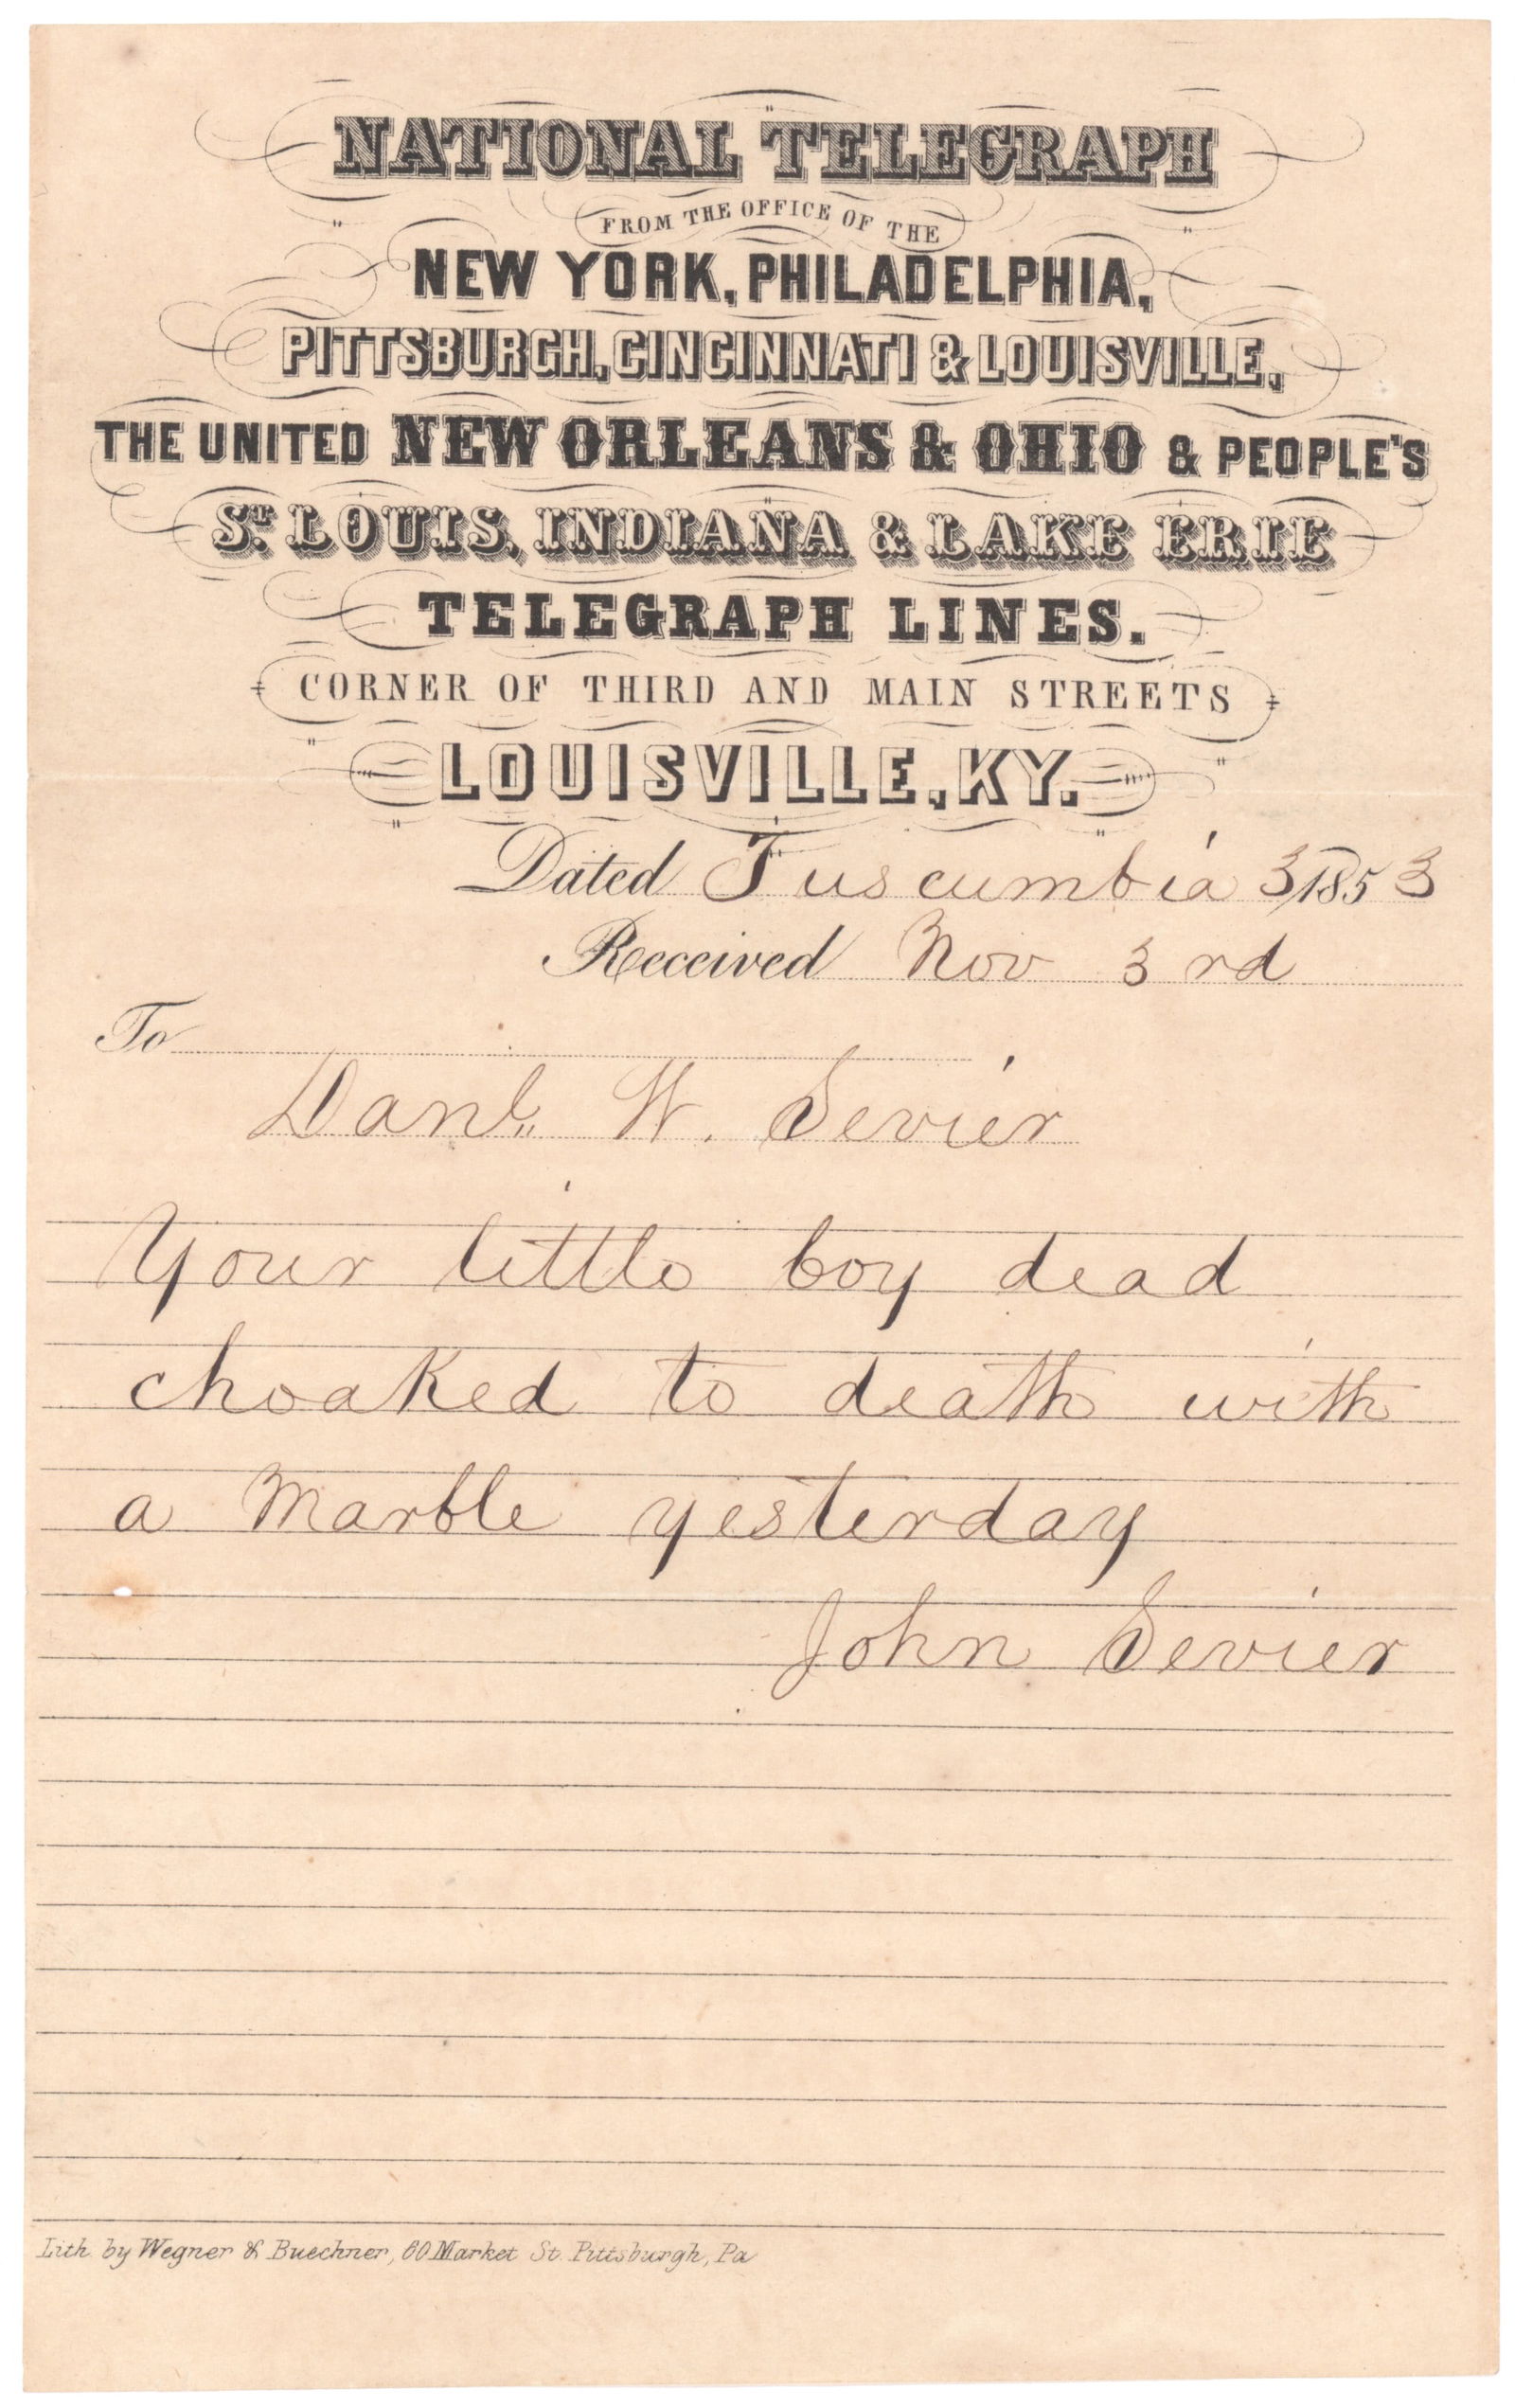 NATIONAL TELEGRAPH
FROM THE OFFICE OF THE
NEW YORK, PHILADELPHIA,
PITTSBURGH, CINCINNATI & LOUISVILLE,
THE UNITED NEW ORLEANS & OHIO & PEOPLE'S
ST. LOUIS, INDIANA & LAKE ERIE
TELEGRAPH LINES.
CORNER OF THIRD AND MAIN STREETS
LOUISVILLE, KY.
Dated Tuscumbia 3 1853
Received Nov 3rd
To
Danl. W. Sevier
Your little boy dead
choaked to death with
a Marble yesterday
John Sevier
Lith. by Wegner & Buechner, 60 Market St. Pittsburgh, Pa